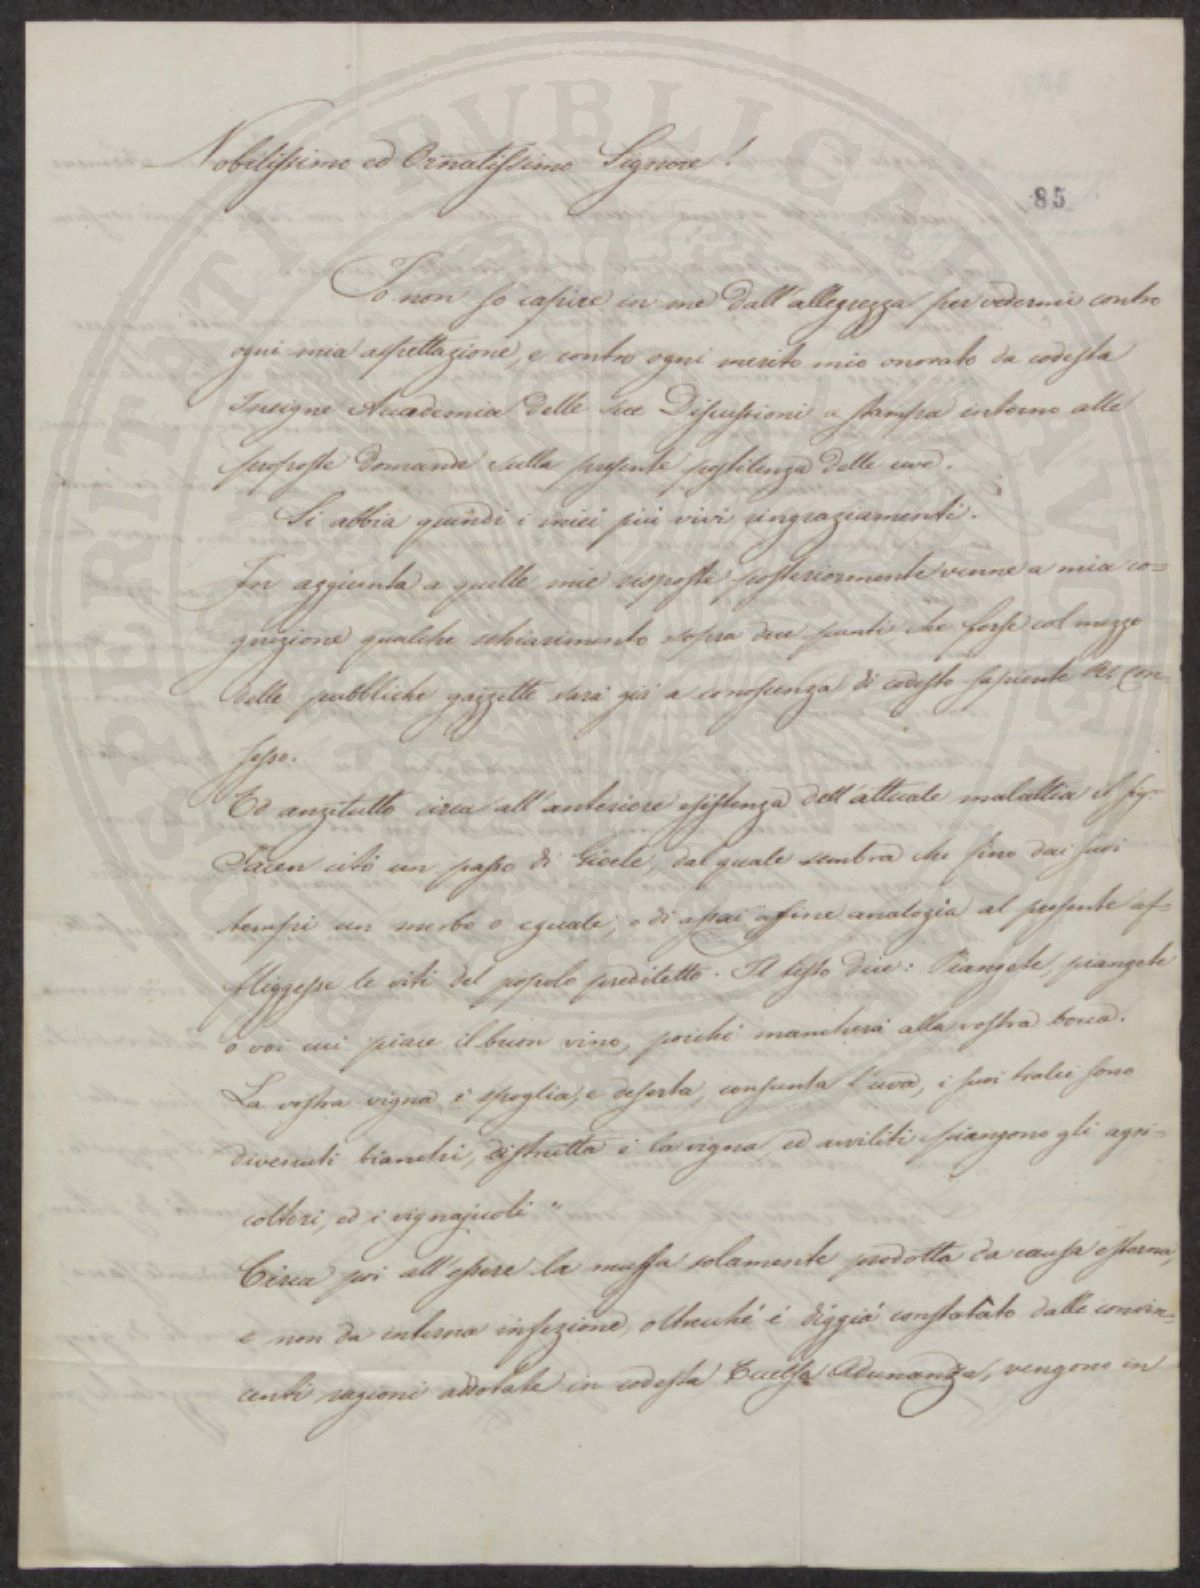 Nobilissimo ed Ornatissimo Signore!
85
Io non so capire in me dall'allegrezza per vedermi contro
ogni mia aspettazione, e contro ogni merito mio onorato da codesta
Insigne Accademia delle sue Discussioni a stampa intorno alle
proposte domande sulla presente pestilenza delle uve.
Si abbia quindi i miei più vivi ringraziamenti.
In aggiunta a quelle mie risposte posteriormente venne a mia co=
gnizione qualche schiarimento sopra due punti che forse col mezzo
delle pubbliche gazzette sarà già a conoscenza di codesto sapiente Con=
sesso.
Ed anzitutto circa all'anteriore esistenza dell'attuale malattia il Sigr
citò un passo di Gioele, dal quale sembra che fino dai suoi
tempi un morbo o eguale, o di assai affine analogia al presente af=
fliggesse le viti del popolo prediletto. Il testo dice: Piangete, piangete
o voi cui piace il buon vino, poichè mancherà alla vostra bocca.
La vostra vigna è spoglia, e deserta, consunta l'uva, i suoi tralci sono
divenuti bianchi, distrutta è la vigna, ed avviliti piangono gli agri=
coltori, ed i vignajuoli"
Circa poi all'essere la muffa solamente prodotta da causa esterna,
e non da interna infezione, oltrechè è diggià constatato dalle convin=
centi ragioni addotate in codesta Eccelsa Adunanza, vengono in
PUBLICAE